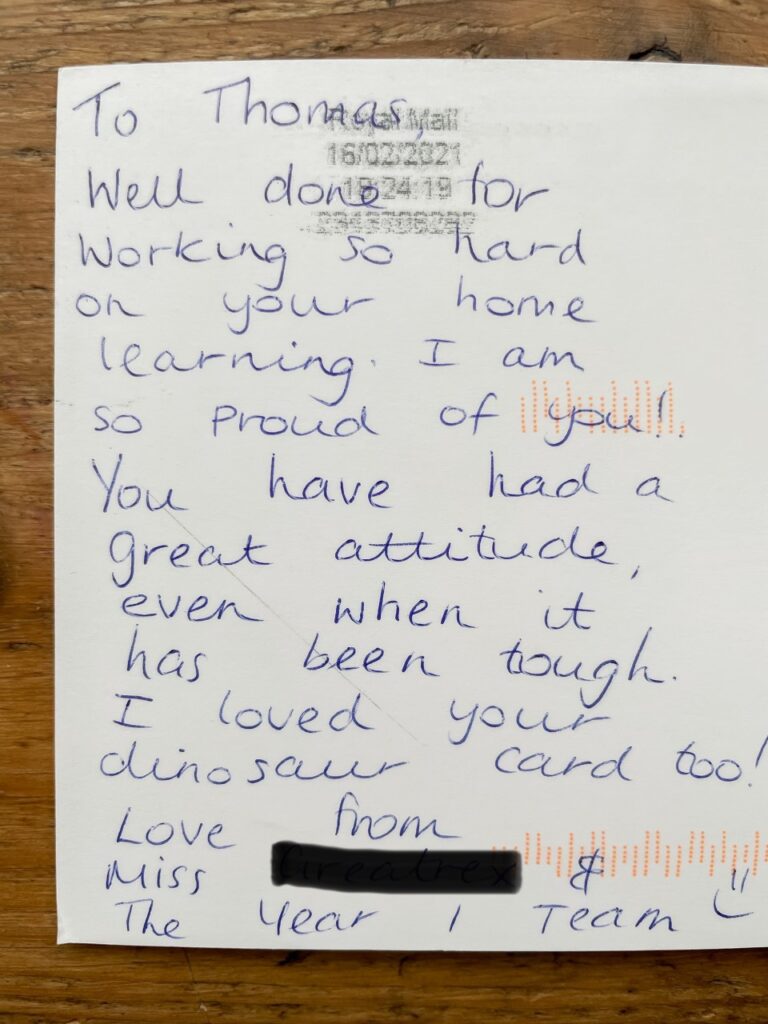 To Thomas,
Royal Mail
16/02/2021
18:24:19
Well done for
working so hard
on your home
learning. I am
so proud of you!.
You have had a
great attitude,
even when it
has been tough.
I loved your
dinosaur card too!
Love from
Miss &
The Year 1 Team